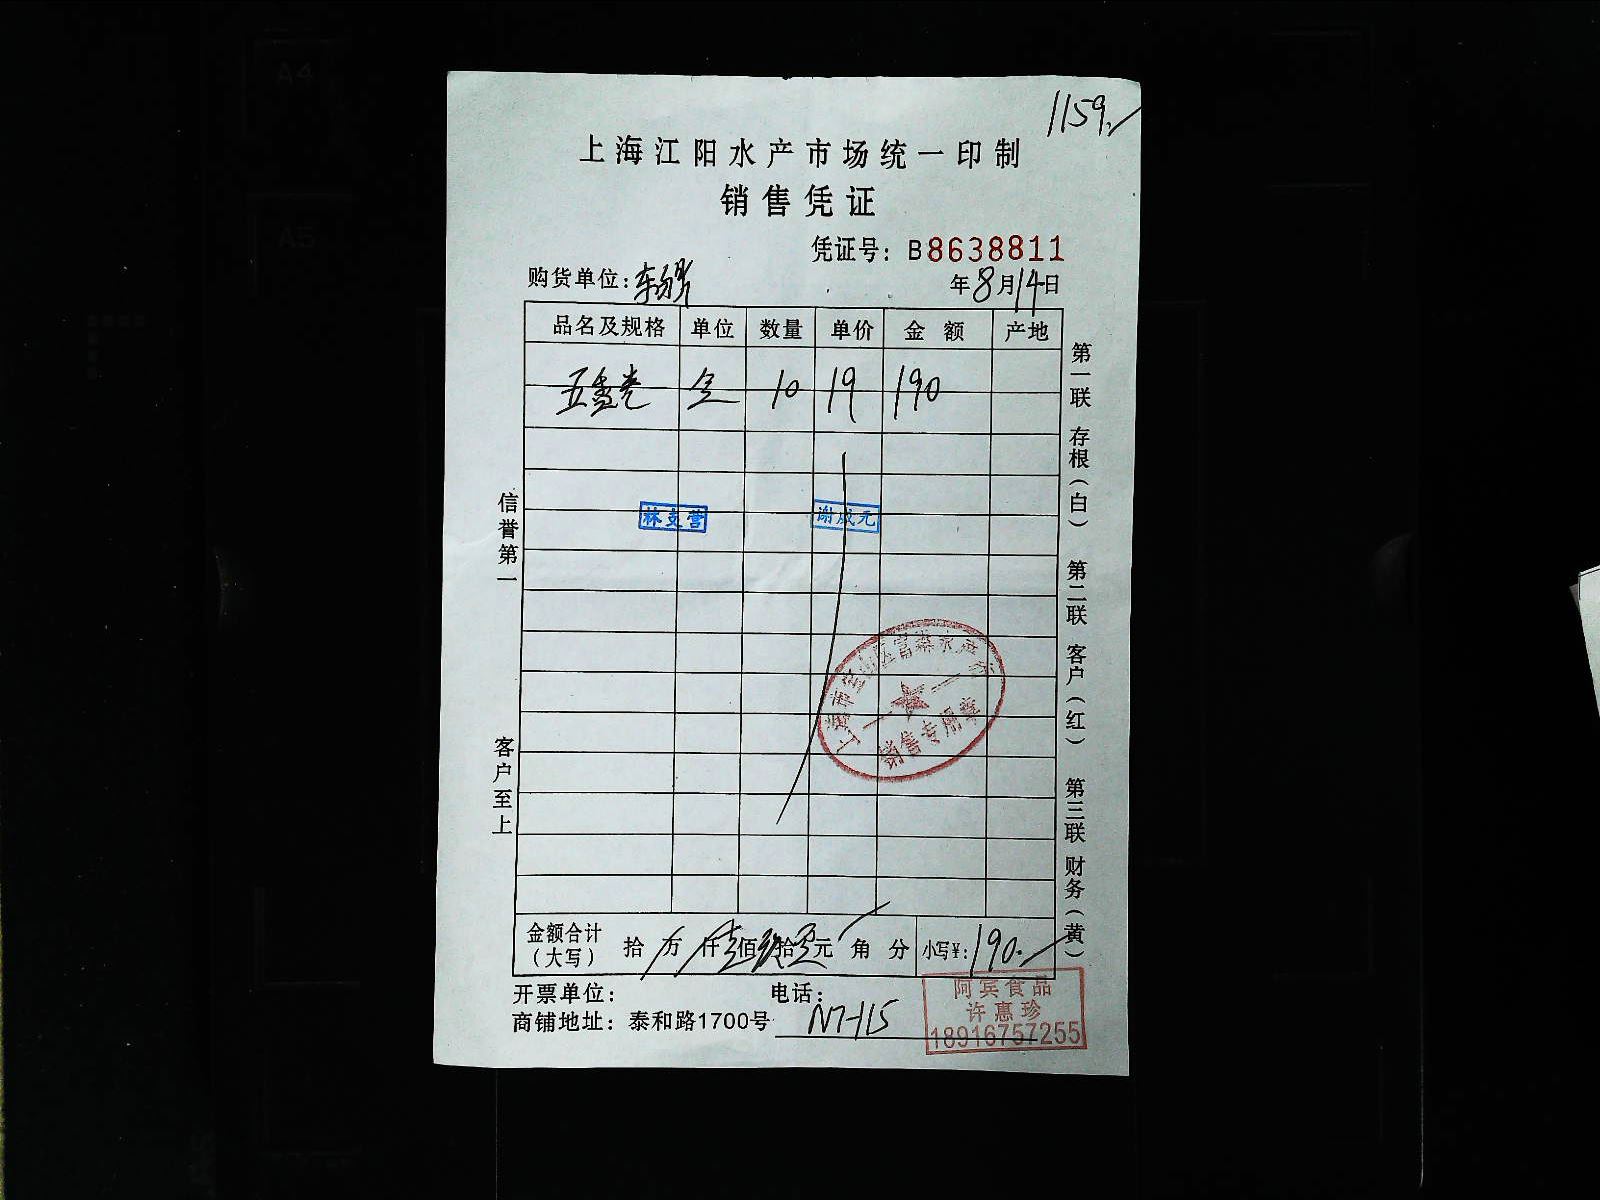 1159.
上海江阳水产市场统一印制
销售凭证
凭证号：B8638811
购货单位：
年8月14日
品名及规格 单位 数量 单价 金额 产地
五香 10 19 190
林支营 谢成元
信誉第一
客户至上
第一联 存根（白） 第二联 客户（红） 第三联 财务（黄）
上海市宝山区富 水产
销售专用章
金额合计（大写） 拾 万 仟壹佰玖拾零元 角 分 小写¥：190.
开票单位： 电话：
商铺地址：泰和路1700号 N7-115
阿宾食品
许惠珍
18916757255